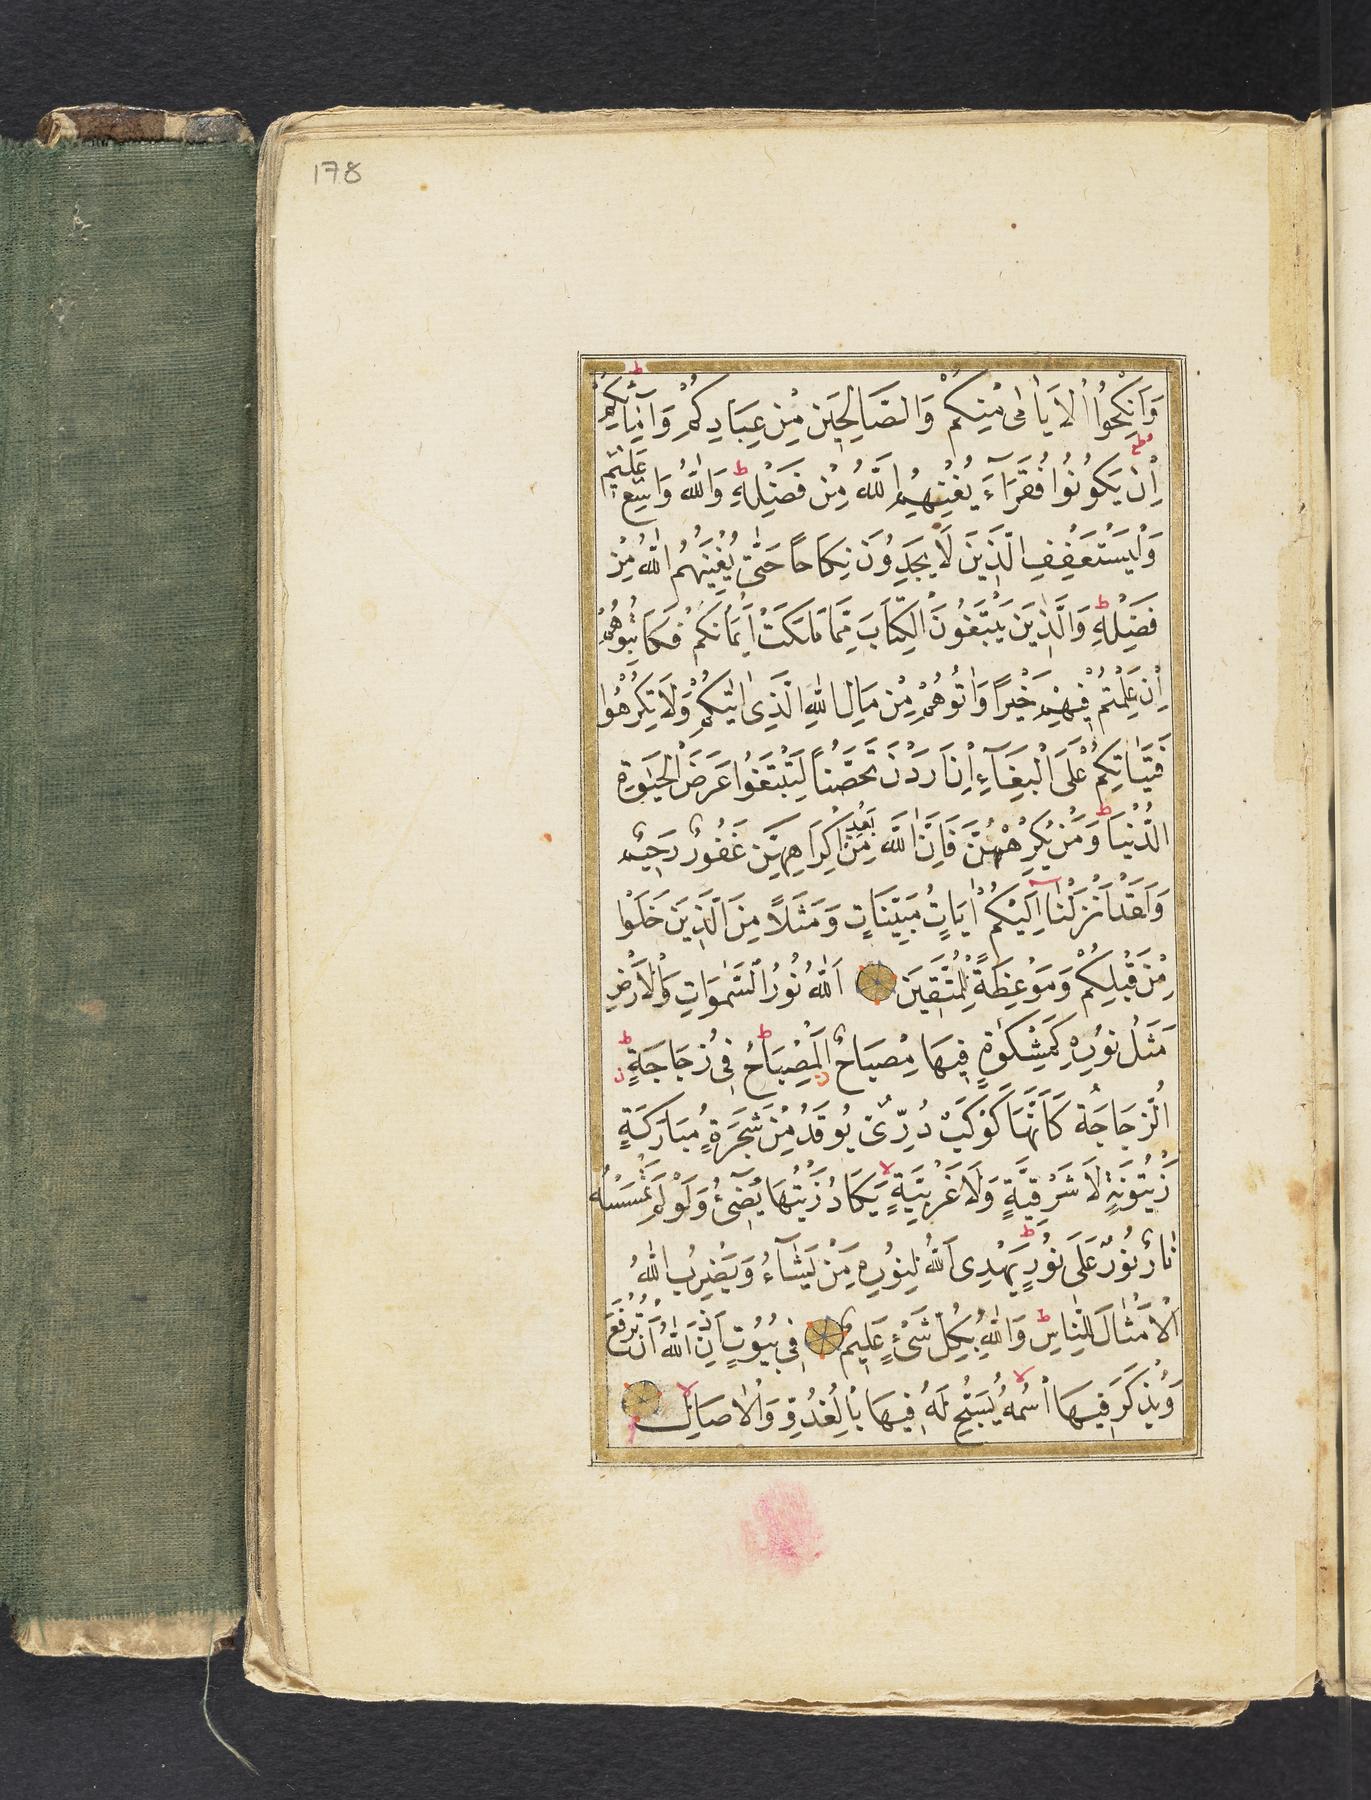 178
وَاَنْكِحُوا الْاَيَامٰى مِنْكُمْ وَالصَّالِحِينَ مِنْ عِبَادِكُمْ وَاِمَٓائِكُمْ ط
اِنْ يَكُونُوا فُقَرَٓاءَ يُغْنِهِمُ اللّٰهُ مِنْ فَضْلِهِ ط وَاللّٰهُ وَاسِعٌ عَلِيمٌ
وَلْيَسْتَعْفِفِ الَّذِينَ لَا يَجِدُونَ نِكَاحًا حَتّٰى يُغْنِيَهُمُ اللّٰهُ مِنْ
فَضْلِهِ ط وَالَّذِينَ يَبْتَغُونَ الْكِتَابَ مِمَّا مَلَكَتْ اَيْمَانُكُمْ فَكَاتِبُوهُمْ
اِنْ عَلِمْتُمْ فِيهِمْ خَيْرًا وَاٰتُوهُمْ مِنْ مَالِ اللّٰهِ الَّذِى اٰتٰيكُمْ وَلَا تُكْرِهُوا
فَتَيَاتِكُمْ عَلَى الْبِغَٓاءِ اِنْ اَرَدْنَ تَحَصُّنًا لِتَبْتَغُوا عَرَضَ الْحَيٰوةِ
الدُّنْيَا ط وَمَنْ يُكْرِهْهُنَّ فَاِنَّ اللّٰهَ مِنْ بَعْدِ اِكْرَاهِهِنَّ غَفُورٌ رَحِيمٌ
وَلَقَدْ اَنْزَلْنَٓا اِلَيْكُمْ اٰيَاتٍ مُبَيِّنَاتٍ وَمَثَلًا مِنَ الَّذِينَ خَلَوْا
مِنْ قَبْلِكُمْ وَمَوْعِظَةً لِلْمُتَّقِينَ اَللّٰهُ نُورُ السَّمٰوَاتِ وَالْاَرْضِ
مَثَلُ نُورِهِ كَمِشْكٰوةٍ فِيهَا مِصْبَاحٌ ط اَلْمِصْبَاحُ فِى زُجَاجَةٍ ط
اَلزُّجَاجَةُ كَاَنَّهَا كَوْكَبٌ دُرِّىٌّ يُوقَدُ مِنْ شَجَرَةٍ مُبَارَكَةٍ
زَيْتُونَةٍ لَا شَرْقِيَّةٍ وَلَا غَرْبِيَّةٍ لا يَكَادُ زَيْتُهَا يُضِٓىءُ وَلَوْ لَمْ تَمْسَسْهُ
نَارٌ نُورٌ عَلٰى نُورٍ ط يَهْدِى اللّٰهُ لِنُورِهِ مَنْ يَشَٓاءُ وَيَضْرِبُ اللّٰهُ
الْاَمْثَالَ لِلنَّاسِ ط وَاللّٰهُ بِكُلِّ شَىْءٍ عَلِيمٌ فِى بُيُوتٍ اَذِنَ اللّٰهُ اَنْ تُرْفَعَ
وَيُذْكَرَ فِيهَا اسْمُهُ لا يُسَبِّحُ لَهُ فِيهَا بِالْغُدُوِّ وَالْاٰصَالِ لا